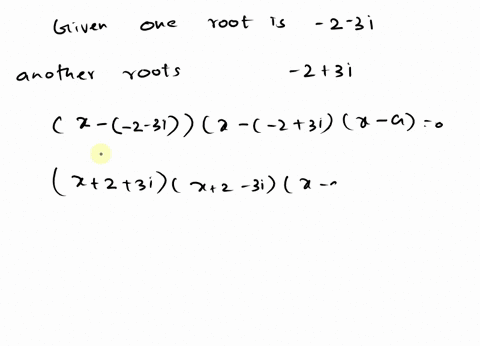 Given one root is -2-3i
another roots -2+3i
(x-(-2-3i))(x-(-2+3i)(x-a)=0
(x+2+3i)(x+2-3i)(x-